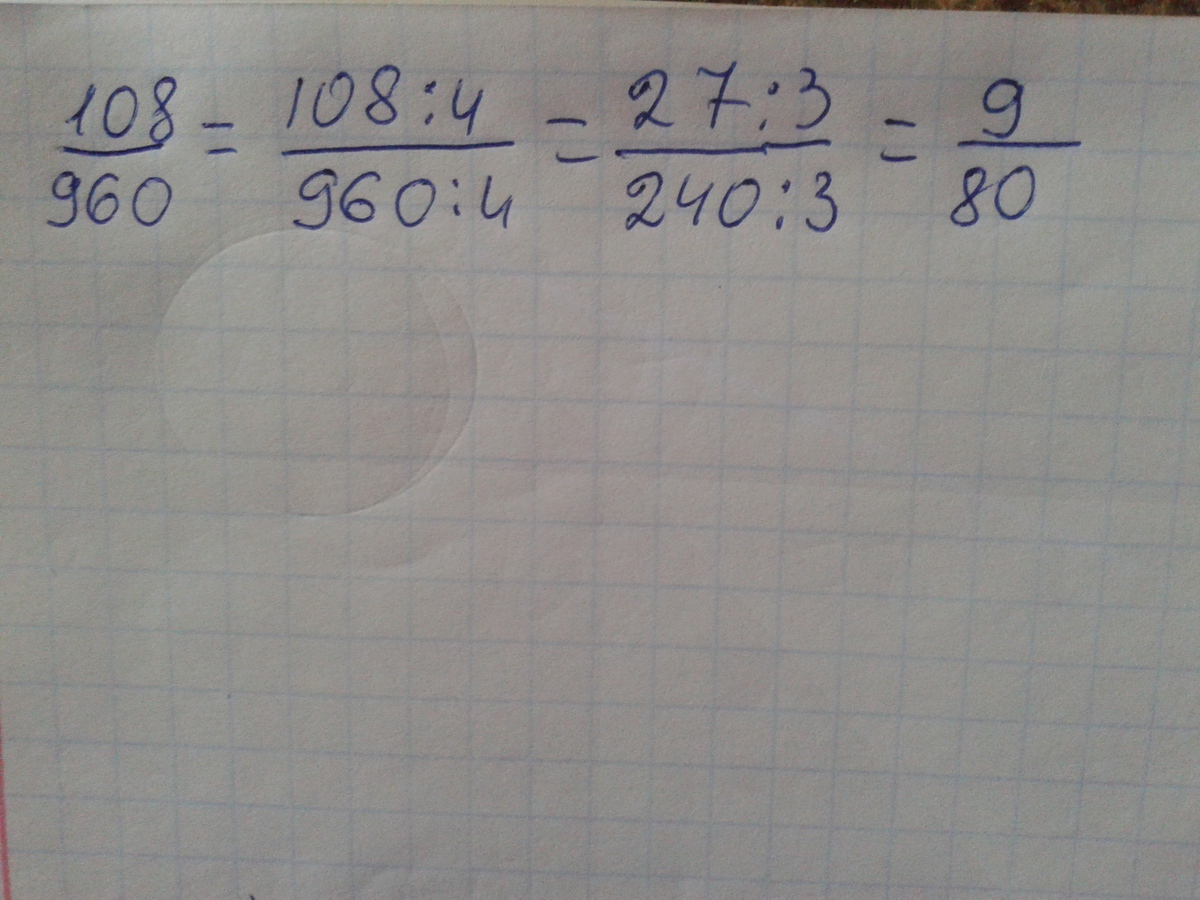 108/960 = 108:4/960:4 = 27:3/240:3 = 9/80